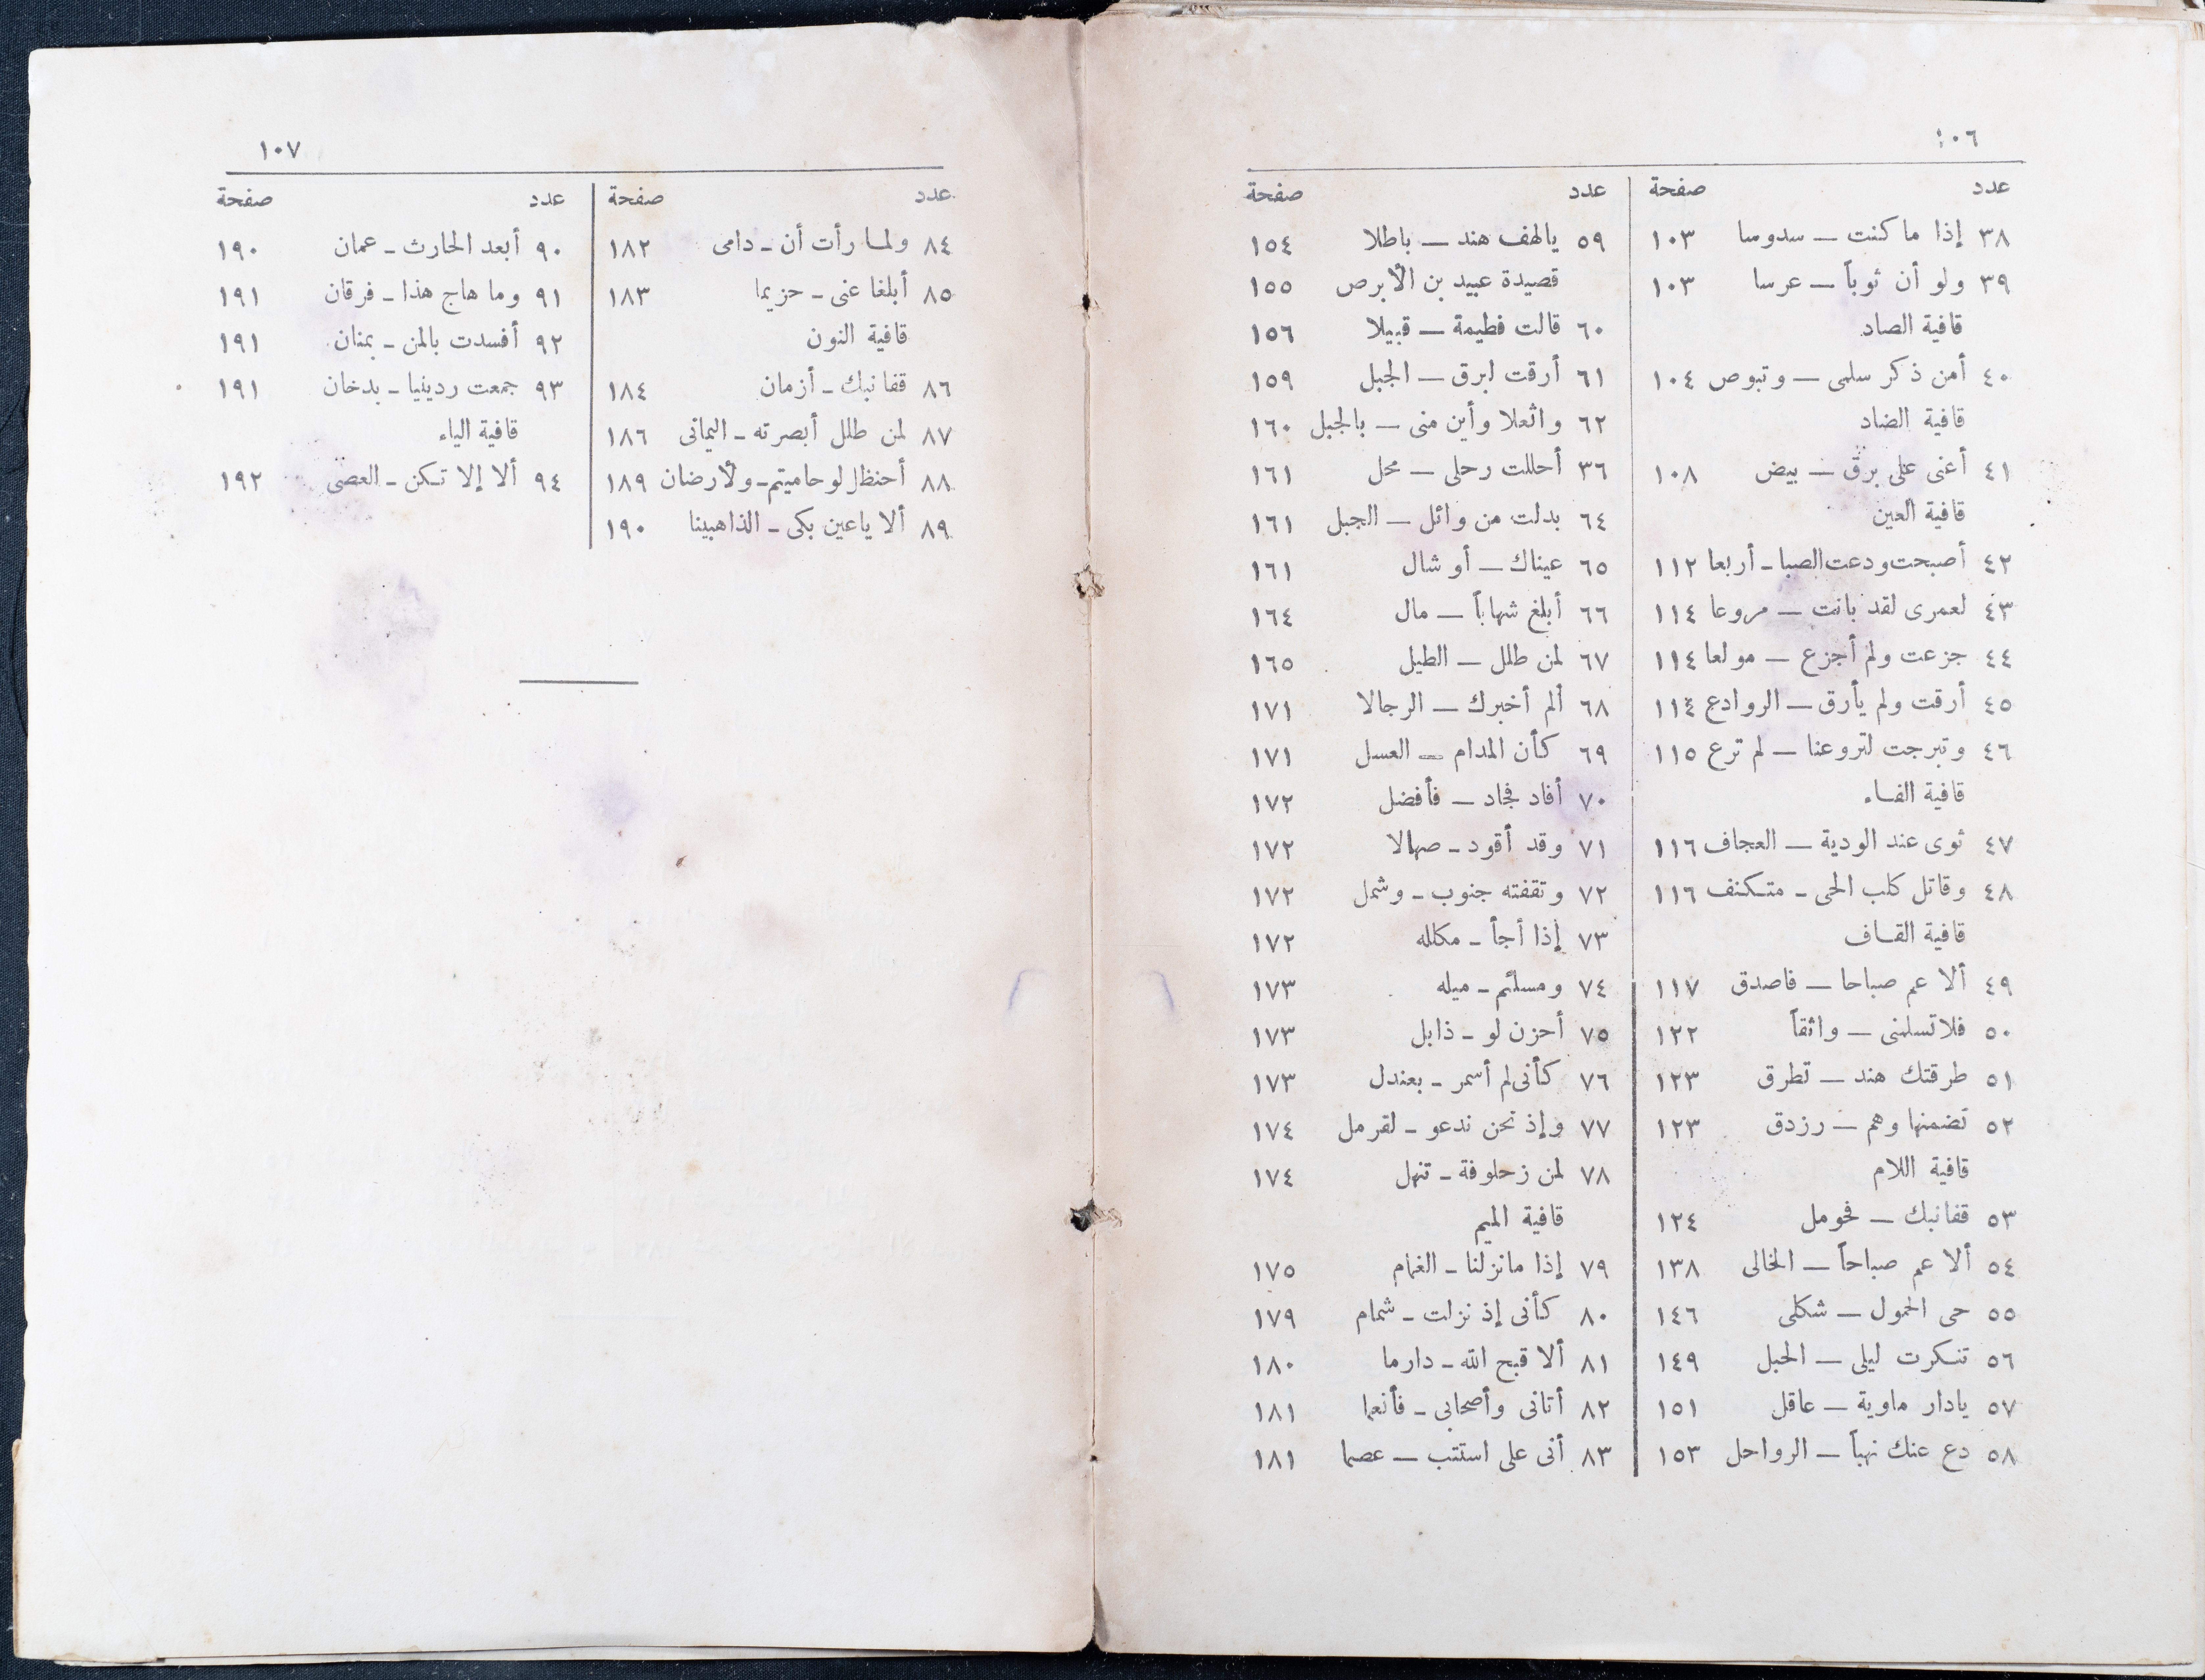 ١٠٦
عدد صفحة
٣٨ إذا ما كنت — سدوسا ١٠٣
٣٩ ولو أن ثوباً — عرسا ١٠٣
قافية الصاد
٤٠ أمن ذكر سلمى — وتبوص ١٠٤
قافية الضاد
٤١ أعنى على برق — بيض ١٠٨
قافية العين
٤٢ أصبحت ودعت الصبا - أربعا ١١٢
٤٣ لعمرى لقد بانت — مروعا ١١٤
٤٤ جزعت ولم أجزع — مولعا ١١٤
٤٥ أرقت ولم يأرق — الروادع ١١٤
٤٦ وتبرجت لتروعنا — لم ترع ١١٥
قافية الفاء
٤٧ ثوى عند الودية — العجاف ١١٦
٤٨ وقاتل كلب الحى - متكنف ١١٦
قافية القاف
٤٩ ألا عم صباحا — فاصدق ١١٧
٥٠ فلا تسلمنى — واثقاً ١٢٢
٥١ طرقتك هند — تطرق ١٢٣
٥٢ تضمنها وهم — رزدق ١٢٣
قافية اللام
٥٣ قفانبك — فحومل ١٢٤
٥٤ ألا عم صباحاً — الخالى ١٣٨
٥٥ حى الحمول — شكلى ١٤٦
٥٦ تنكرت ليلى — الحبل ١٤٩
٥٧ يادار ماوية — عاقل ١٥١
٥٨ دع عنك نهباً — الرواحل ١٥٣
عدد صفحة
٥٩ يالهف هند — باطلا ١٥٤
قصيدة عبيد بن الأبرص ١٥٥
٦٠ قالت فطيمة — قبيلا ١٥٦
٦١ أرقت لبرق — الجبل ١٥٩
٦٢ واثعلا وأين منى — بالجبل ١٦٠
٣٦ أحللت رحلى — محل ١٦١
٦٤ بدلت من وائل — الجبل ١٦١
٦٥ عيناك — أوشال ١٦١
٦٦ أبلغ شهاباً — مال ١٦٤
٦٧ لمن طلل — الطيل ١٦٥
٦٨ ألم أخبرك — الرجالا ١٧١
٦٩ كأن المدام — العسل ١٧١
٧٠ أفاد فجاد — فأفضل ١٧٢
٧١ وقد أقود - صهالا ١٧٢
٧٢ وتقفته جنوب - وشمل ١٧٢
٧٣ إذا أجأ - مكلله ١٧٢
٧٤ ومستلئم - ميله ١٧٣
٧٥ أحزن لو - ذابل ١٧٣
٧٦ كأنى لم أسمر - بعندل ١٧٣
٧٧ وإذ نحن ندعو - لقرمل ١٧٤
٧٨ لمن زحلوفة - تنهل ١٧٤
قافية الميم
٧٩ إذا مانزلنا - الغمام ١٧٥
٨٠ كأنى إذ نزلت - شمام ١٧٩
٨١ ألا قبح الله - دارما ١٨٠
٨٢ أتانى وأصحابى - فأنعما ١٨١
٨٣ أنى على استتب — عصما ١٨١
١٠٧
عدد صفحة
٨٤ ولما رأت أن - دامى ١٨٢
٨٥ أبلغا عنى - حزيما ١٨٣
قافية النون
٨٦ قفا نبك - أزمان ١٨٤
٨٧ لمن طلل أبصرته - اليمانى ١٨٦
٨٨ أحنظل لوحاميتم - ولأرضان ١٨٩
٨٩ ألا ياعين بكى - الذاهبينا ١٩٠
عدد صفحة
٩٠ أبعد الحارث - عمان ١٩٠
٩١ وما هاج هذا - فرقان ١٩١
٩٢ أفسدت بالمن - بمنان ١٩١
٩٣ جمعت ردينيا - بدخان ١٩١
قافية الياء
٩٤ ألا إلا تكن - العصى ١٩٢